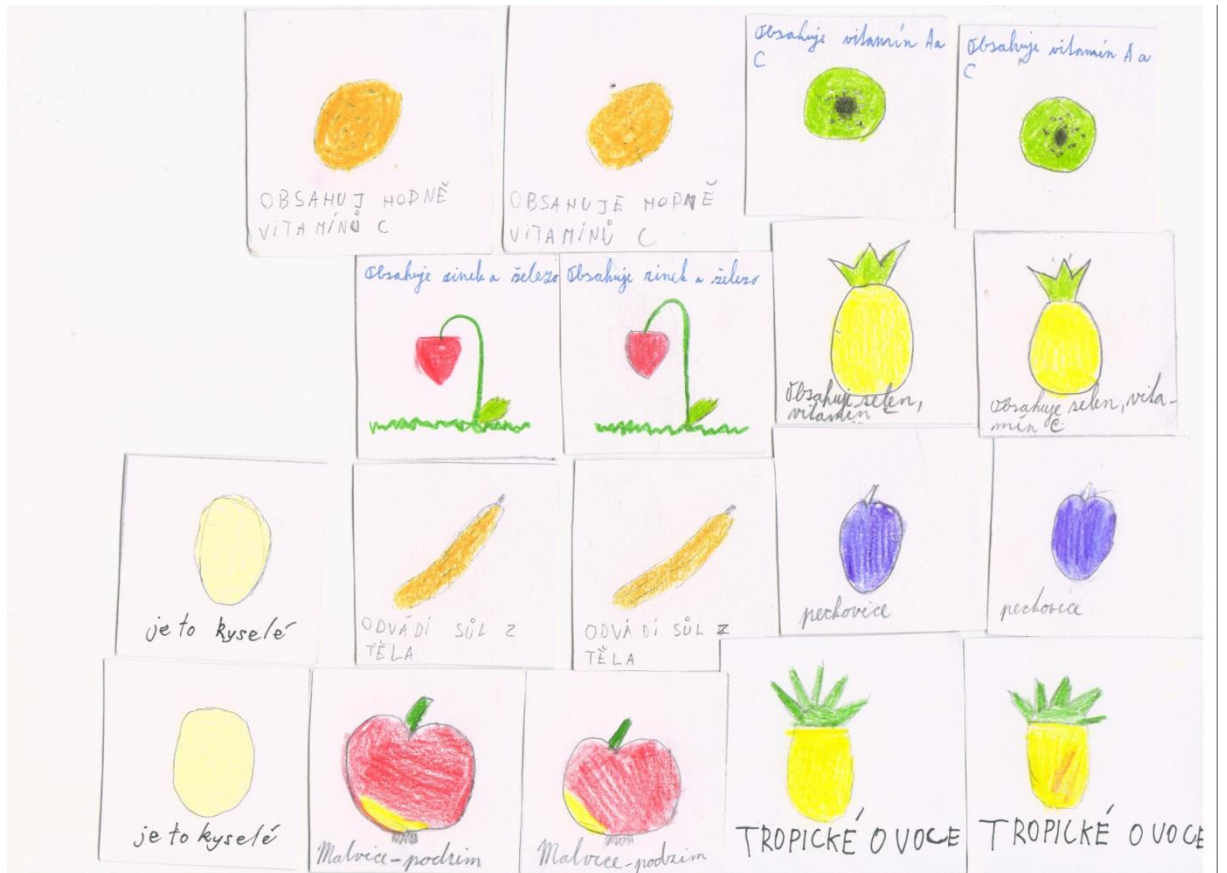 OBSAHUJ HODNĚ
VITAMÍNŮ C
OBSAHUJE HODNĚ
VITAMÍNŮ C
Obsahuje vitamín A a
C
Obsahuje vitamín A a
C
Obsahuje zinek a železo
Obsahuje zinek a železo
Obsahuje selen,
vitamín C
Obsahuje selen, vita-
mín C
je to kyselé
ODVÁDÍ SŮL Z
TĚLA
ODVÁDÍ SŮL Z
TĚLA
peckovice
peckovice
je to kyselé
Malvice-podzim
Malvice-podzim
TROPICKÉ OVOCE
TROPICKÉ OVOCE